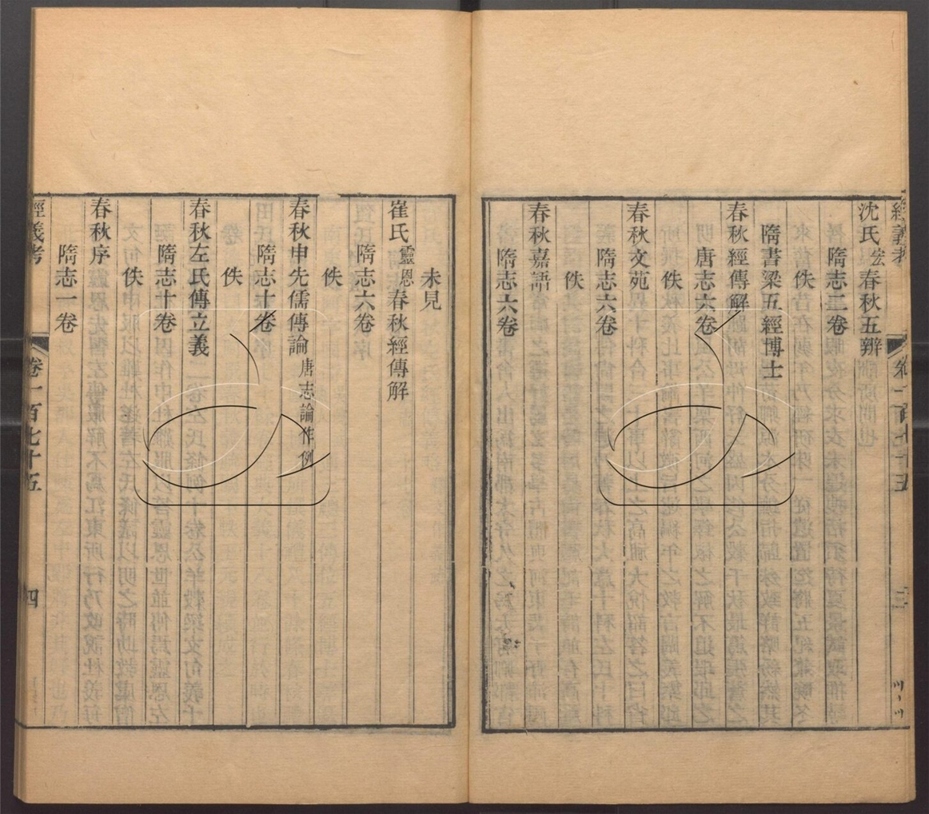 經義考 卷一百七十五 三
沈氏宏春秋五辨
隋志二卷
佚
隋書梁五經博士
春秋經傳解
唐志六卷
佚
春秋文苑
隋志六卷
佚
春秋嘉語
隋志六卷
未見
崔氏靈恩春秋經傳解
隋志六卷
佚
春秋申先儒傳論唐志論作例
隋志十卷
佚
春秋左氏傳立義
隋志十卷
佚
春秋序
隋志一卷
經義考 卷一百七十五 四